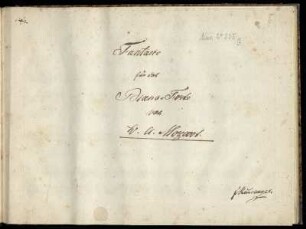 Fantasie
für das
Piano-Forte
von
W. A. Mozart.